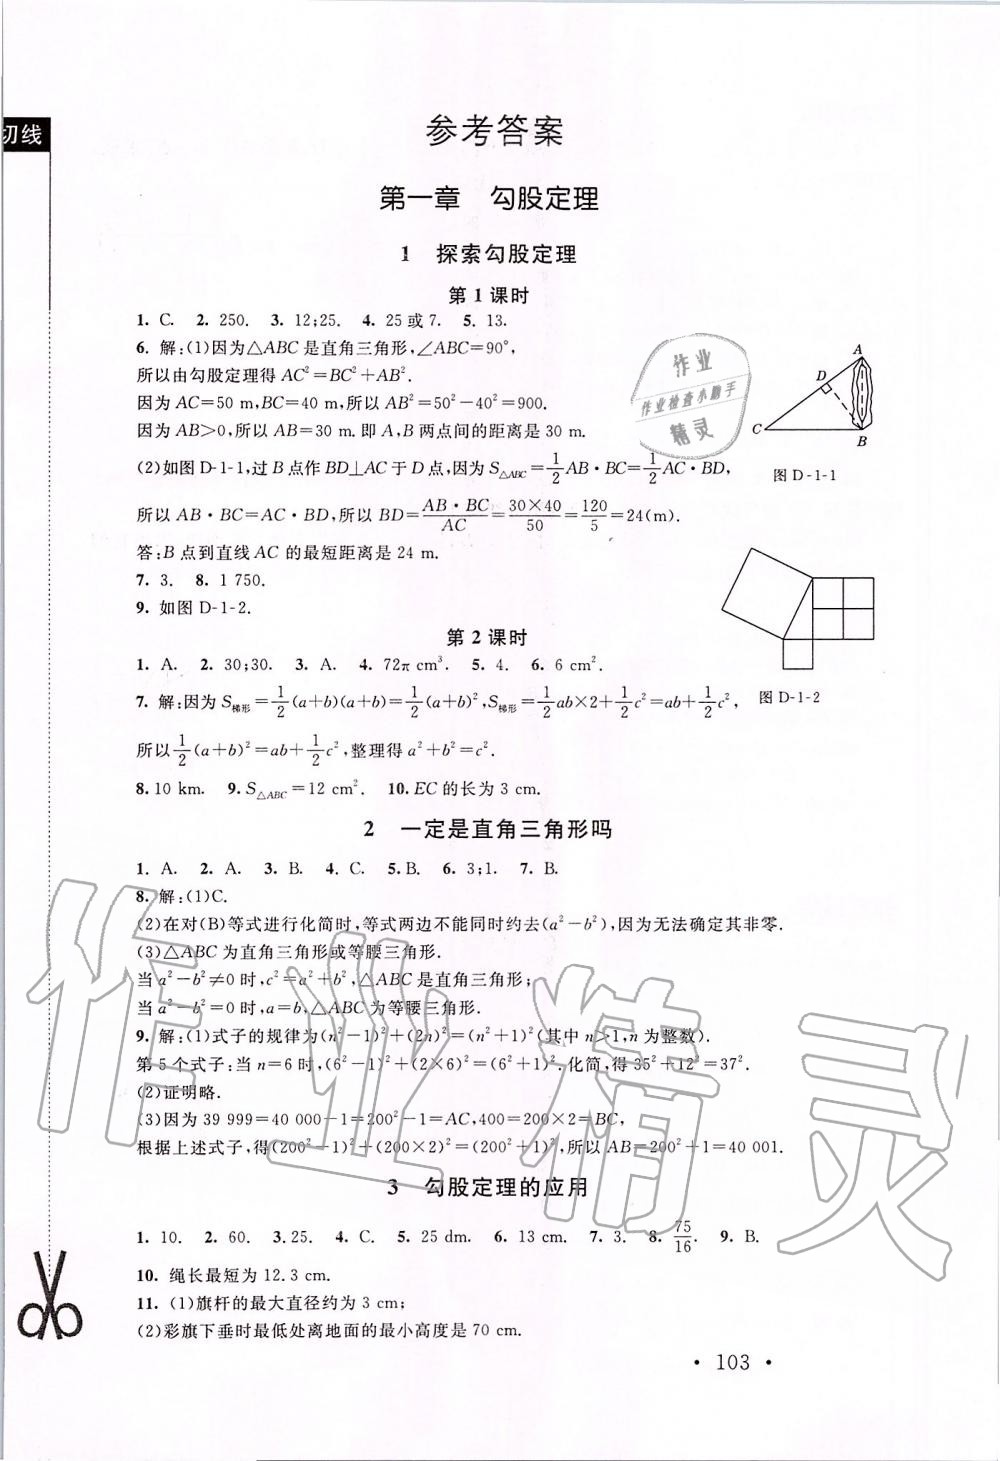 切线
参考答案
第一章 勾股定理
1 探索勾股定理
第1课时
1. C. 2. 250. 3. 12;25. 4. 25或7. 5. 13.
6. 解:(1)因为△ABC是直角三角形,∠ABC=90°,
所以由勾股定理得 AC²=BC²+AB².
因为 AC=50 m,BC=40 m,所以 AB²=50²-40²=900.
因为 AB>0,所以 AB=30 m. 即 A,B 两点间的距离是 30 m.
(2)如图 D-1-1,过 B 点作 BD⊥AC 于 D 点,因为 S△ABC=1/2 AB·BC=1/2 AC·BD,
所以 AB·BC=AC·BD,所以 BD=AB·BC/AC=30×40/50=120/5=24(m).
答:B 点到直线 AC 的最短距离是 24 m.
A
D
C
B
图 D-1-1
7. 3. 8. 1 750.
9. 如图 D-1-2.
第2课时
1. A. 2. 30;30. 3. A. 4. 72π cm³. 5. 4. 6. 6 cm².
7. 解:因为 S梯形=1/2(a+b)(a+b)=1/2(a+b)²,S梯形=1/2ab×2+1/2c²=ab+1/2c²,
图 D-1-2
所以1/2(a+b)²=ab+1/2c²,整理得 a²+b²=c².
8. 10 km. 9. S△ABC=12 cm². 10. EC 的长为 3 cm.
2 一定是直角三角形吗
1. A. 2. A. 3. B. 4. C. 5. B. 6. 3;1. 7. B.
8. 解:(1)C.
(2)在对(B)等式进行化简时,等式两边不能同时约去(a²-b²),因为无法确定其非零.
(3)△ABC 为直角三角形或等腰三角形.
当 a²-b²≠0 时,c²=a²+b²,△ABC 是直角三角形;
当 a²-b²=0 时,a=b,△ABC 为等腰三角形.
9. 解:(1)式子的规律为(n²-1)²+(2n)²=(n²+1)²(其中 n>1,n 为整数).
第 5 个式子:当 n=6 时,(6²-1)²+(2×6)²=(6²+1)².化简,得 35²+12²=37².
(2)证明略.
(3)因为 39 999=40 000-1=200²-1=AC,400=200×2=BC,
根据上述式子,得(200²-1)²+(200×2)²=(200²+1)²,所以 AB=200²+1=40 001.
3 勾股定理的应用
1. 10. 2. 60. 3. 25. 4. C. 5. 25 dm. 6. 13 cm. 7. 3. 8. 75/16. 9. B.
10. 绳长最短为 12.3 cm.
11. (1)旗杆的最大直径约为 3 cm;
(2)彩旗下垂时最低处离地面的最小高度是 70 cm.
· 103 ·
作业
作业检查小助手
精灵
作业精灵